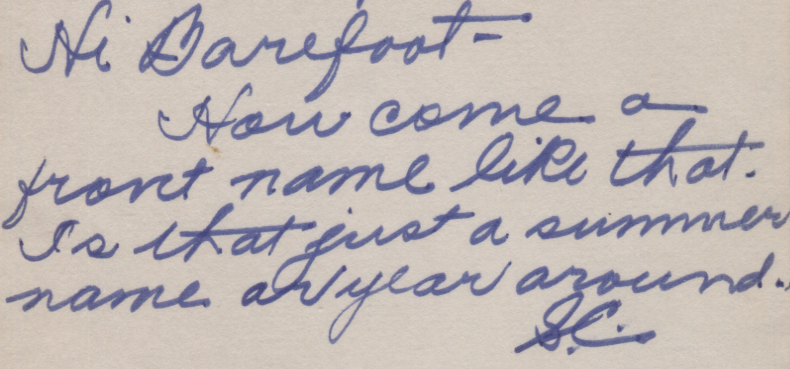 Hi Barefoot-
How come a
front name like that.
Is that just a summer
name or year around.
S.C.